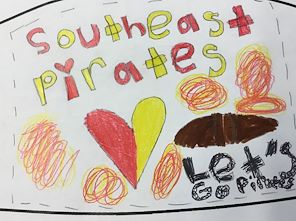 Southeast
pirates
Let's
Go Pirates